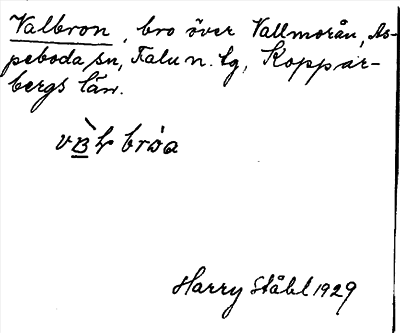 Valbron, bro över Vallmorån, As-
peboda sn, Falu n. tg, Koppar-
bergs län.
Harry Ståhl 1929